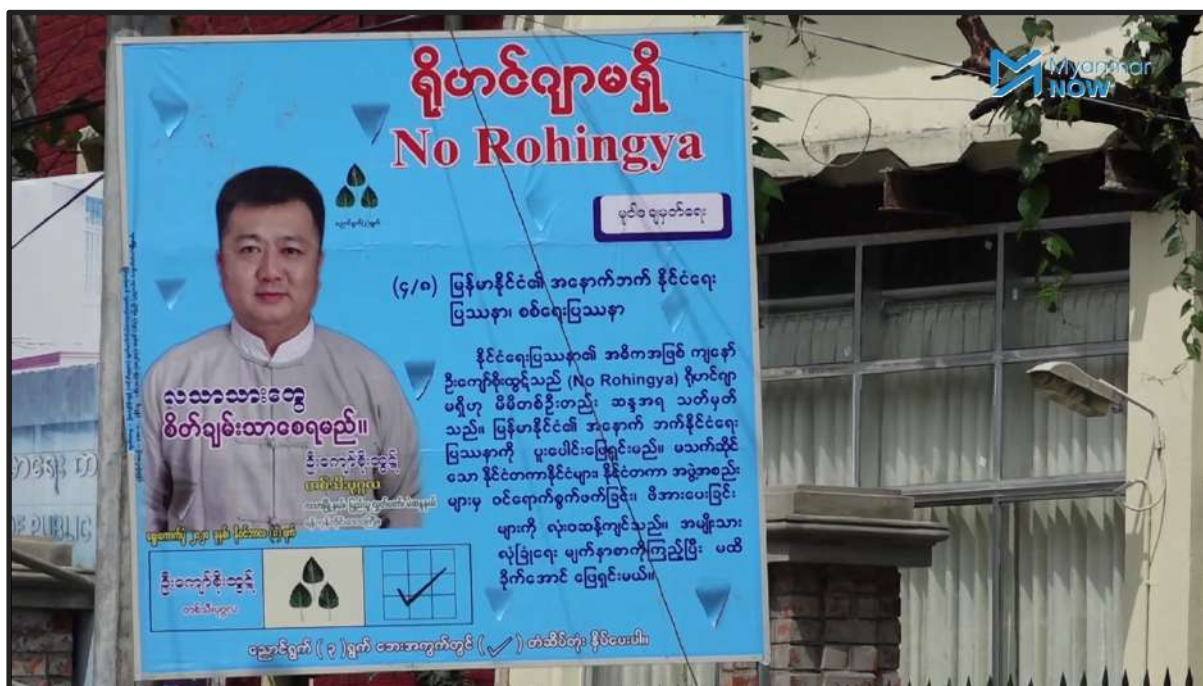 Myanmar
NOW
ရိုဟင်ဂျာမရှိ
No Rohingya
မူဝါဒ ချမှတ်ရေး
(၄/၈) မြန်မာနိုင်ငံ၏ အနောက်ဘက် နိုင်ငံရေး
ပြဿနာ၊ စစ်ရေးပြဿနာ
နိုင်ငံရေးပြဿနာ၏ အဓိကအဖြစ် ကျနော်
ဦးကျော်စိုးထွဋ်သည် (No Rohingya) ရိုဟင်ဂျာ
မရှိဟု မိမိတစ်ဦးတည်း ဆန္ဒအရ သတ်မှတ်
သည်။ မြန်မာနိုင်ငံ၏ အနောက် ဘက်နိုင်ငံရေး
ပြဿနာကို ပူးပေါင်းဖြေရှင်းမည်။ မသက်ဆိုင်
သော နိုင်ငံတကာနိုင်ငံများ၊ နိုင်ငံတကာ အဖွဲ့အစည်း
များမှ ဝင်ရောက်စွက်ဖက်ခြင်း၊ ဖိအားပေးခြင်း
များကို လုံးဝဆန့်ကျင်သည်။ အမျိုးသား
လုံခြုံရေး မျက်နှာစာကိုကြည့်ပြီး မထိ
ခိုက်အောင် ဖြေရှင်းမယ်။
လသာသားတွေ
စိတ်ချမ်းသာစေရမည်။
ဦးကျော်စိုးထွဋ်
တစ်သီးပုဂ္ဂလ
ဦးကျော်စိုးထွဋ်
တစ်သီးပုဂ္ဂလ
ညောင်ရွက် ( ၃ )ရွက် ဘေးအကွက်တွင် ( ✓ ) တံဆိပ်တုံး နှိပ်ပေးပါ။
PUBLIC